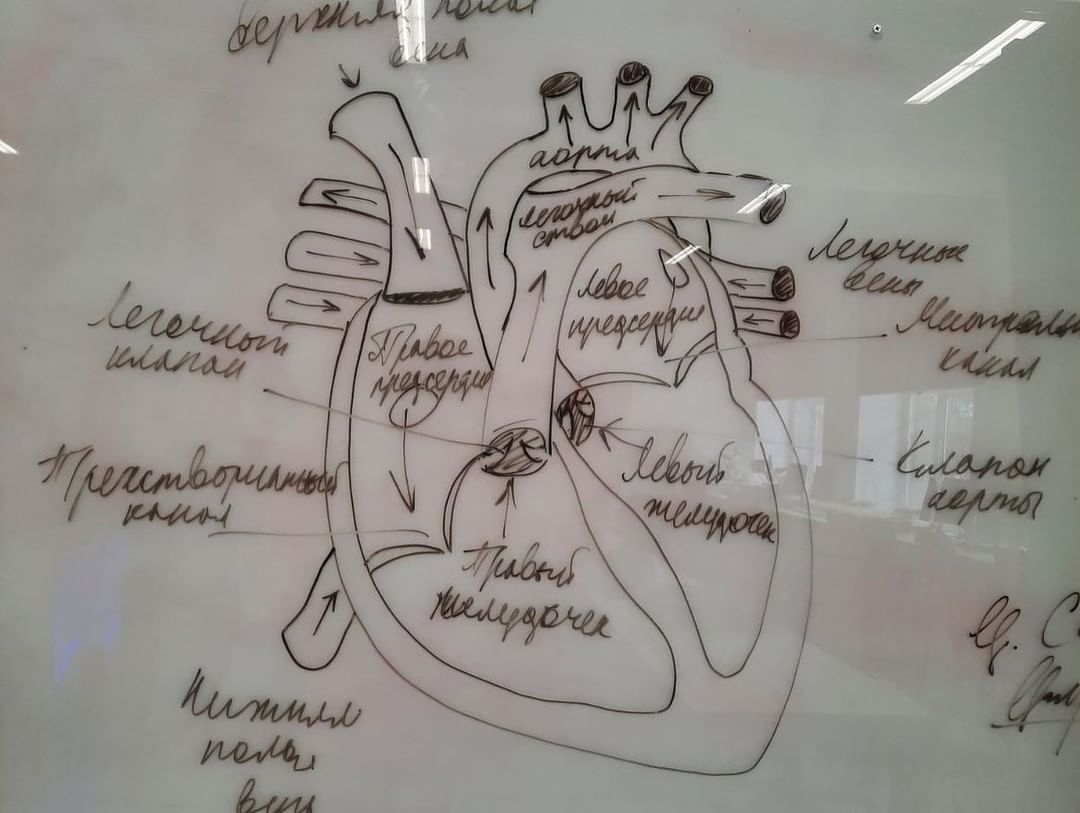 Верхняя полая
вена
аорта
легочный
ствол
Легочные
вены
Левое
предсердие
Митральн
канал
Легочный
клапан
Правое
предсердие
Трехстворчатый
канал
Левый
желудочек
Клапан
аорты
Правый
желудочек
Нижняя
полая
вена